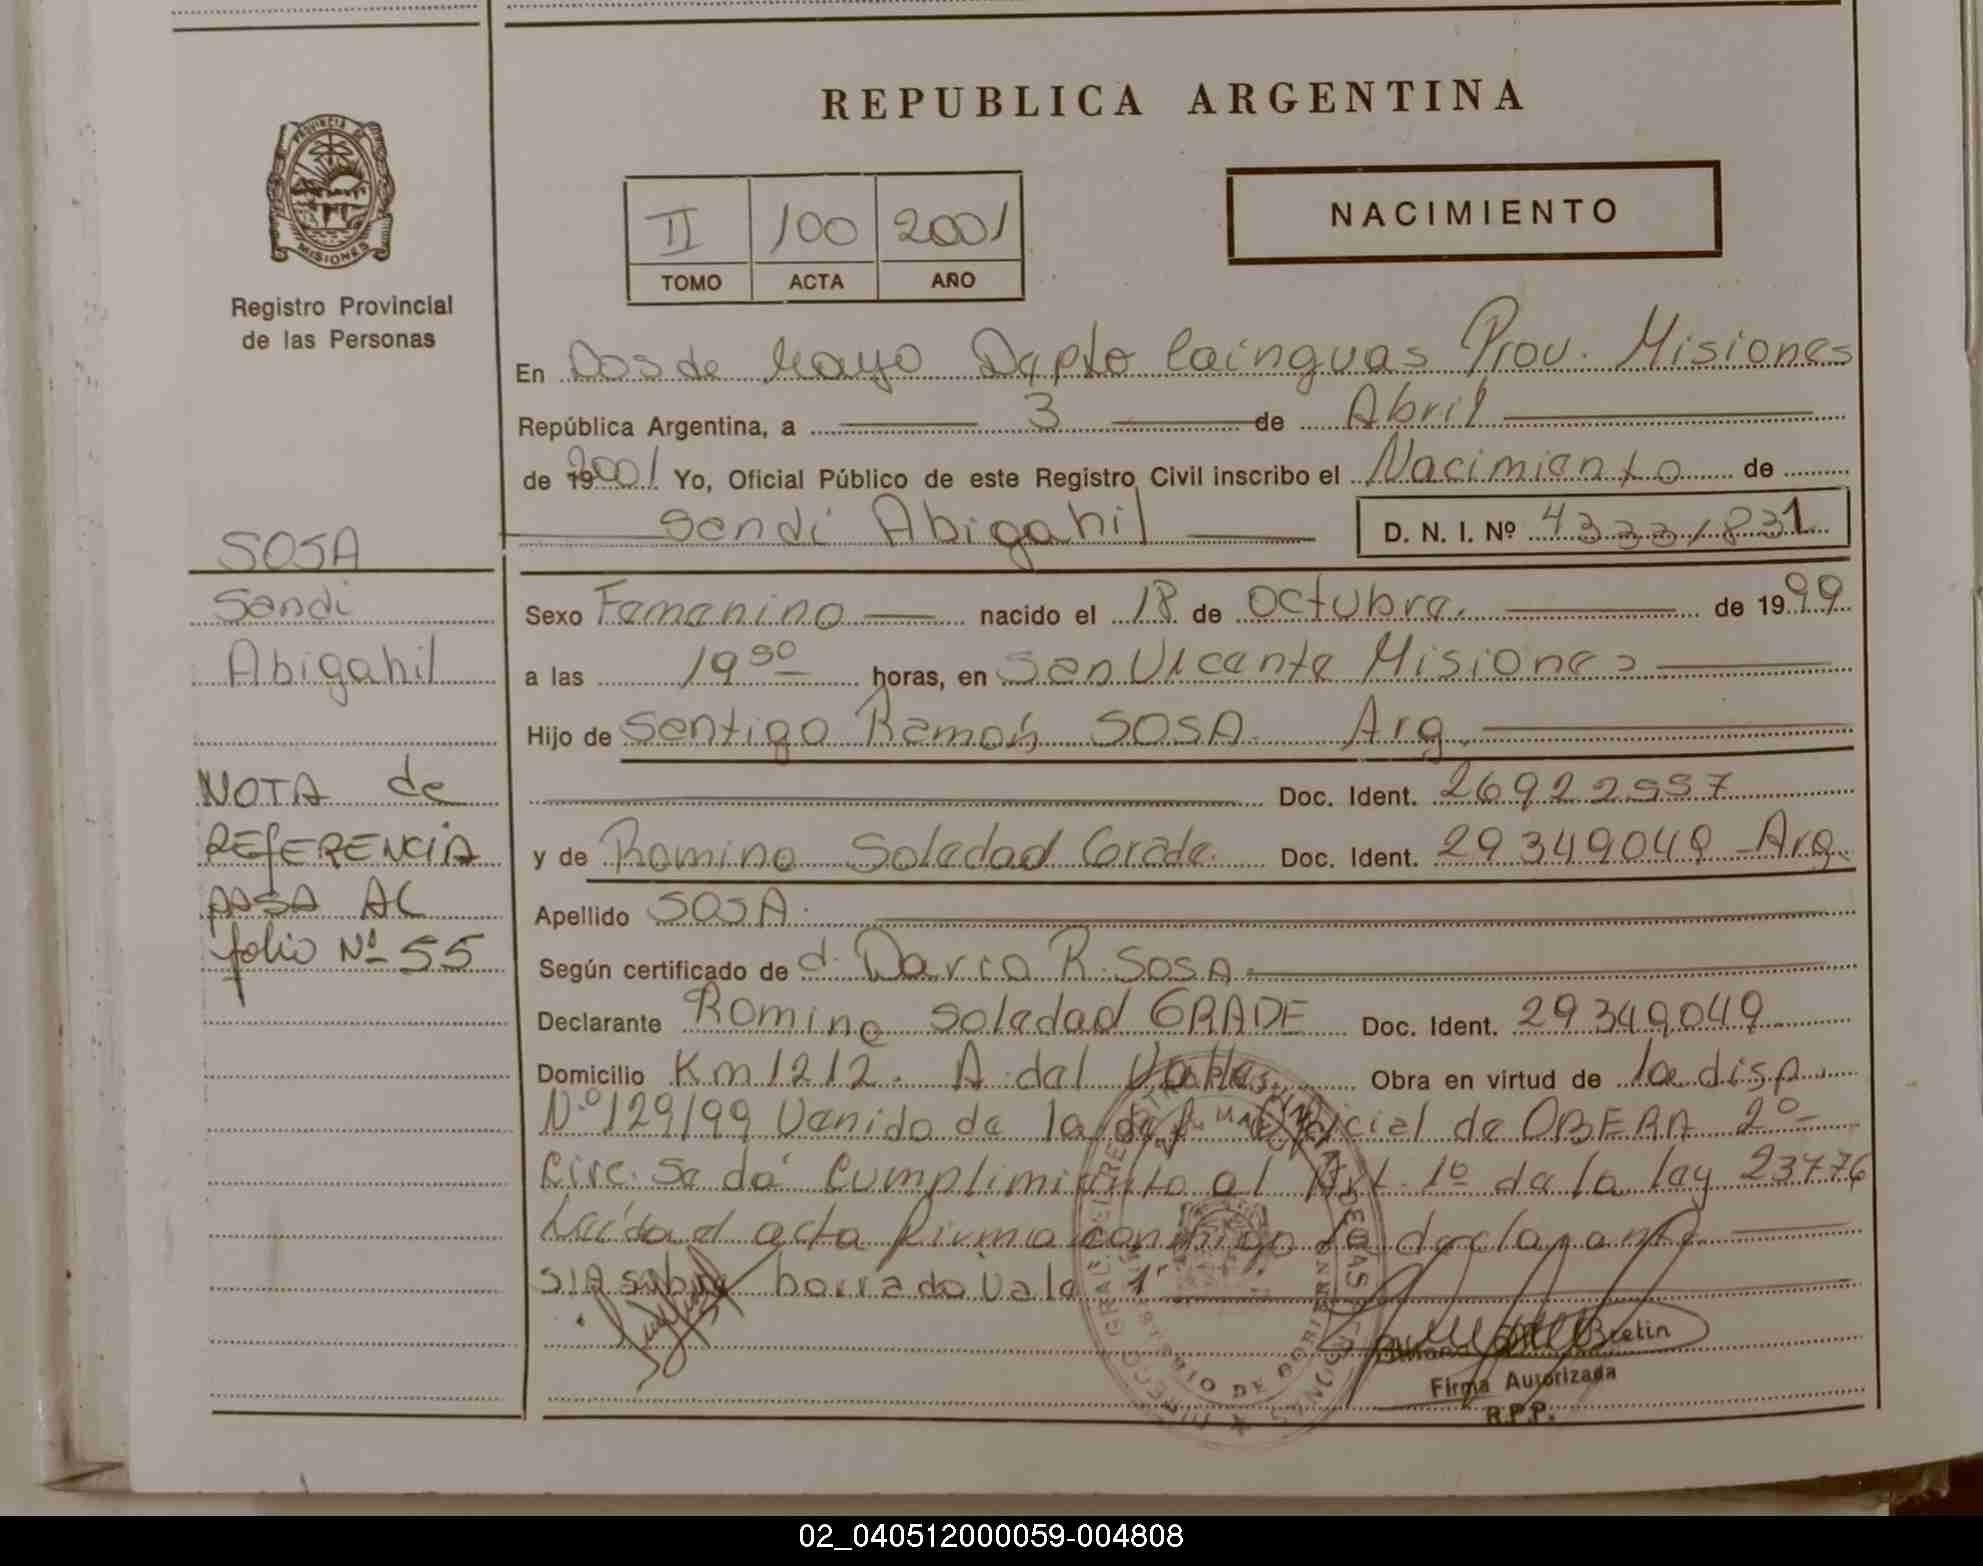 REPUBLICA ARGENTINA
PROVINCIA DE
MISIONES
Registro Provincial
de las Personas
II 100 2001
TOMO ACTA AÑO
NACIMIENTO
En Dos de Mayo Depto Cainguas Prov. Misiones
República Argentina, a 3 de Abril
de 192001 Yo, Oficial Público de este Registro Civil inscribo el Nacimiento de
Sandi Abigahil D. N. I. Nº 43331831
SOSA
Sandi
Abigahil
NOTA de
REFERENCIA
PASA AL
folio Nº 55
Sexo Femenino nacido el 18 de Octubre. de 1999
a las 19 30 horas, en San Vicente Misiones
Hijo de Santigo Ramón SOSA. Arg.
Doc. Ident. 26922557
y de Romina Soledad Grade. Doc. Ident. 29349049 Arg.
Apellido SOSA.
Según certificado de d. Darco R. SOSA.
Declarante Romina Soledad GRADE Doc. Ident. 29349049
Domicilio Km 1212. A. del Valle. Obra en virtud de la disp.
Nº 129/99 Venido de la def. Oficial de OBERA 2º
Circ. Se dá Cumplimiento al Art. 1º de la ley 23776
Leída el acta firma conmigo la declarante
S/A sobre borrado Vale 1
Bretin
Firma Autorizada
R.P.P.
02_040512000059-004808